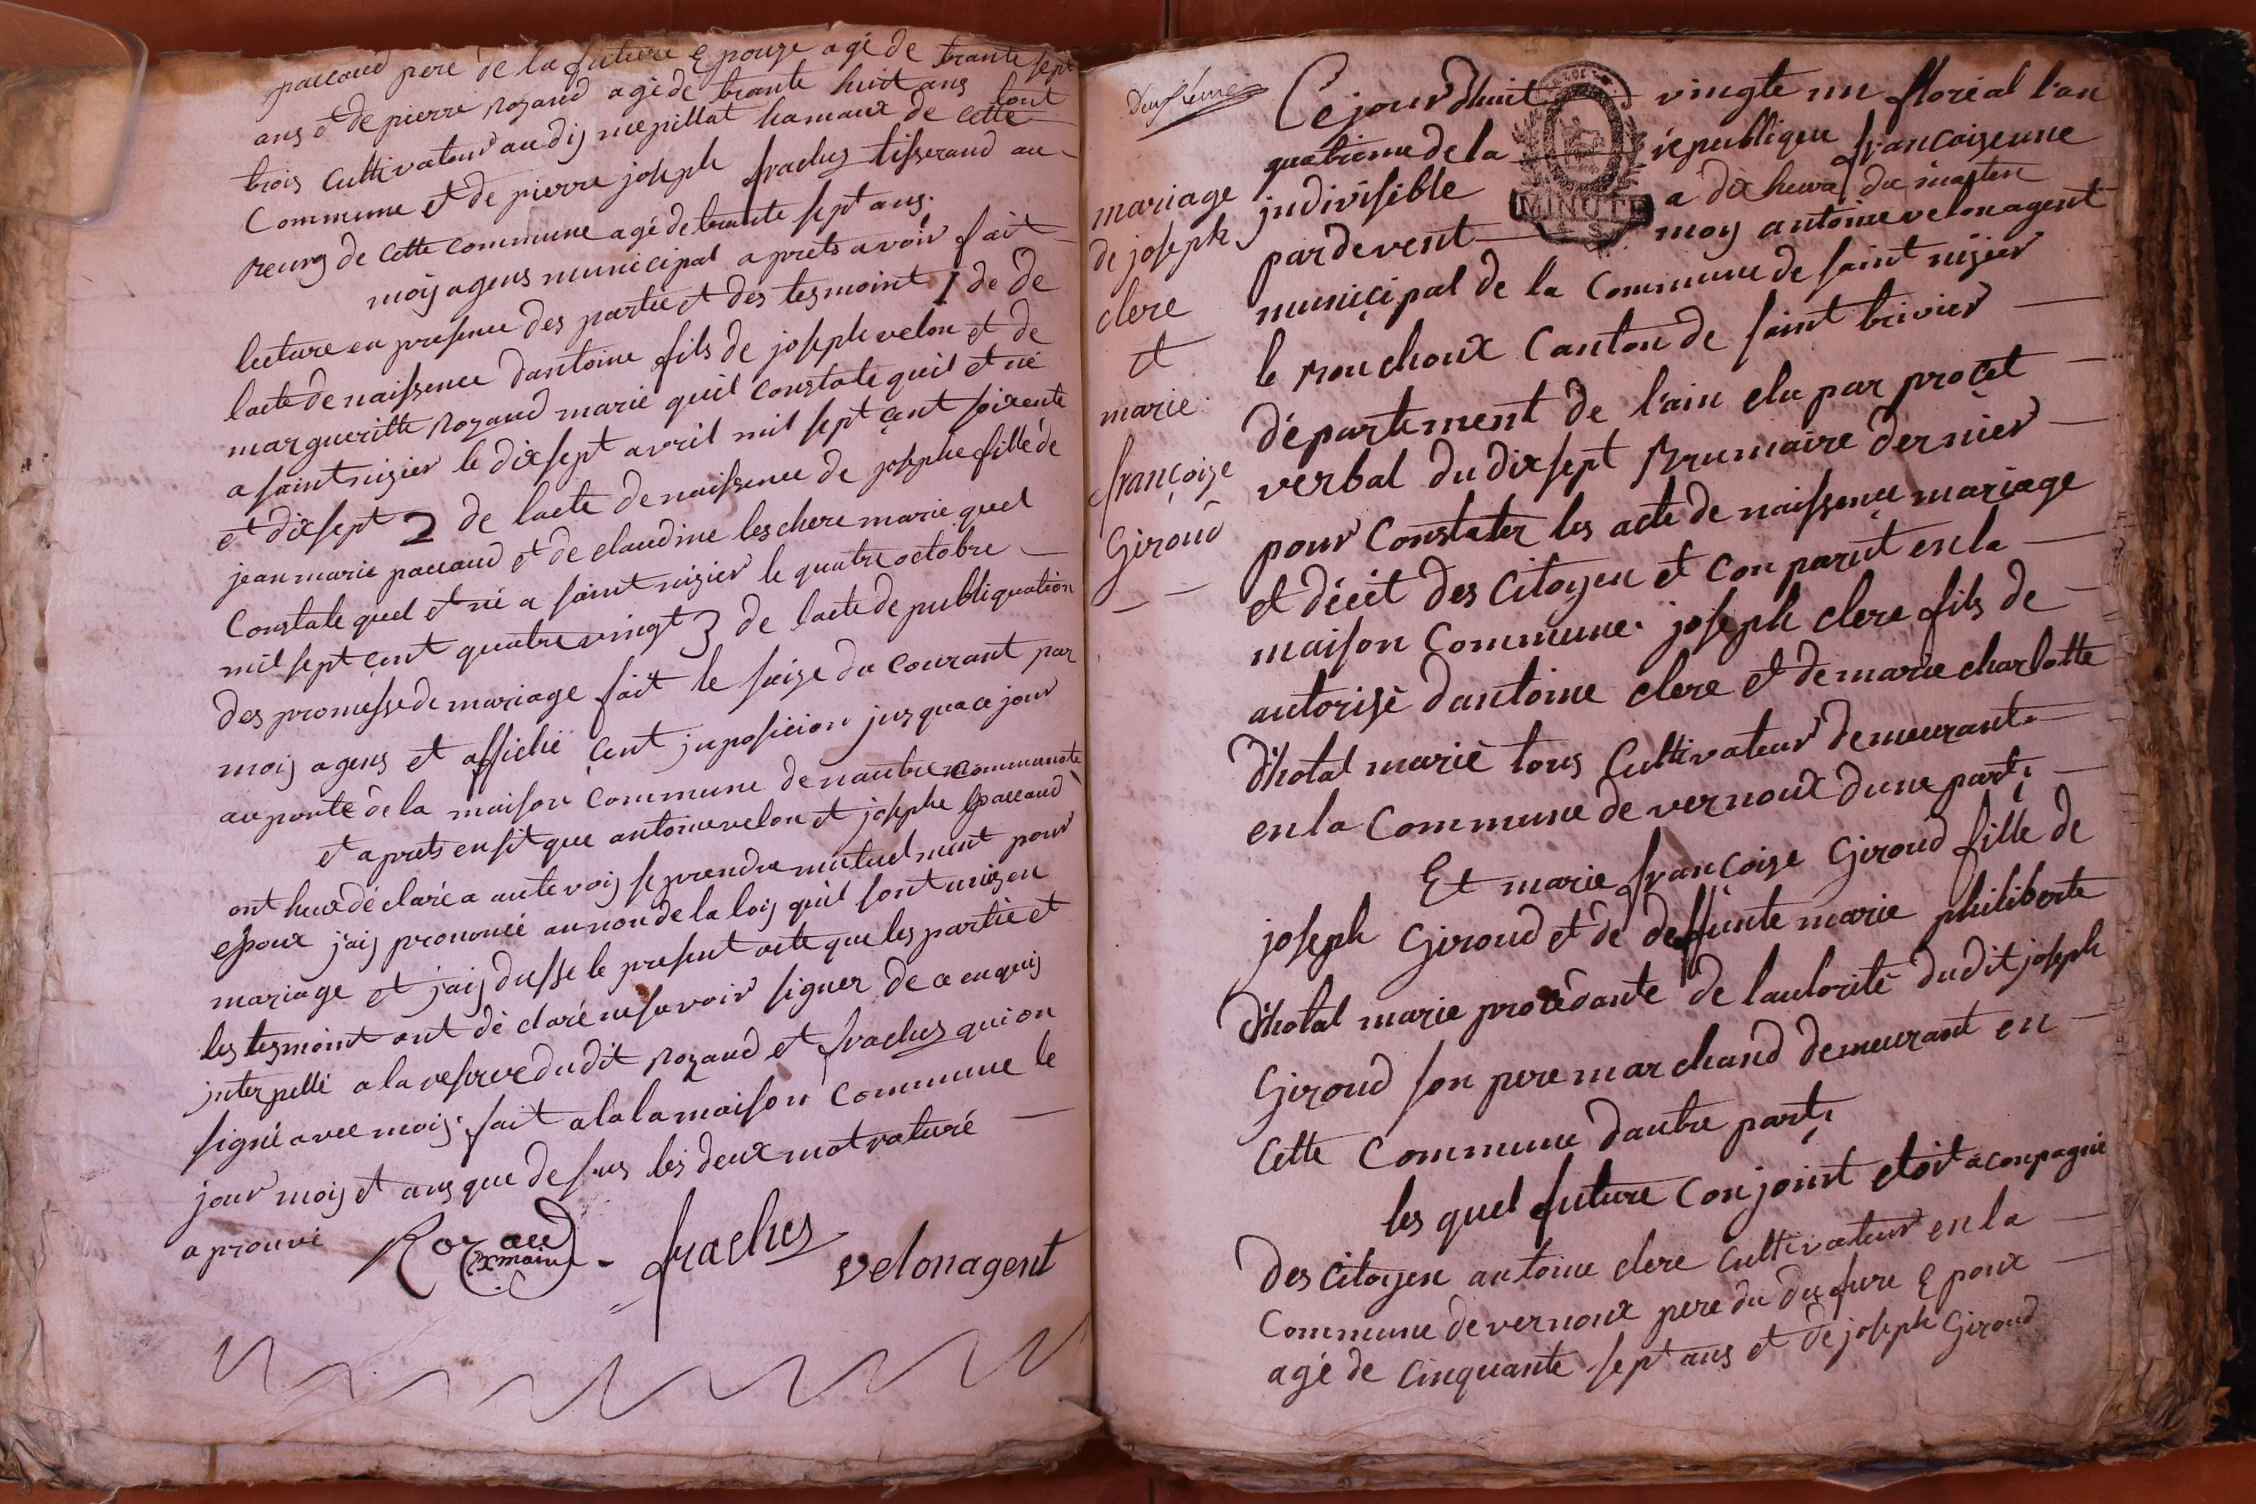 paccaud pere de la future epouze agé de trante sept
ans et de pierre rozand agé de trante huit ans tout
trois cultivateur au dij mepillat hamaux de cette
Commune et de pierre joseph fraches tisserand au
reung de cette commune agé de trante sept ans.
moij agens municipal aprets avoir fait
lecture en presence des partie et des tesmoint 1 de de
lacte de naissence dantoine fils de joseph velon et de
margueritte rozand marié quil constate quil et né
a saint nizier le dix sept avril mil sept cent soixente
et dix sept 2 de lacte de naissence de josephe fille de
jean marie paccaud et de claudine leschere marie quel
Constate quel et né a saint nizier le quatre octobre
mil sept cent quatre vingt 3 de lacte de publiquation
des promesse de mariage fait le seize du courant par
moij agens et affiché cent juposicion jusqua ce jour
au porte de la maison commune de nautre communoté
et aprets ensit que antoine velon et josephe paccaud
ont heux déclaré a aute voij se prendre mutuelment pour
epoux jaij prononcé au non de la loij quil sont unis en
mariage et jaij dusse le present acte que les partie et
les tesmoint ont dé claré ne savoir signer de ce enquij
jnterpellé a la reserve dudit rozand et fraches qui on
signé avec moij. fait a la la maison commune le
jour mois et ans que de sus les deux mot raturé
a prouvé
Rozand
fraches
velon agent
Deuxième
mariage
de joseph
clere
et
marie
françoise
Giroud
Ce jourdhuit vingte un floréal l'an
quatrieme de la république françoise une
jndivisible a dix heure du maten
pardevent moij antoine velon agent
municipal de la commune de saint nizier
le bouchoux Canton de saint trivier
département de l'ain elu par procet
verbal du dix sept Brumaire dernièr
pour constater les acte de naissence mariage
et décét des citoyen et con parut en la
maison commune. joseph clere fils de
autorisé dantoine clere et de marie charlotte
d'hotal marié tous cultivateur demeurant
en la commune de vernoux dune part,
Et marie françoise Giroud fille de
joseph Giroud et de deffunte marie philiberte
d'hotal marie procédante de lautorité dudit joseph
Giroud son pere marchand demeurant en
cette commune dautre part,
les quel future conjoint etoit aconpagné
des citoyen antoine clere cultivateur en la
commune de vernoux pere du du fure epoux
agé de cinquante sept ans et de joseph Giroud